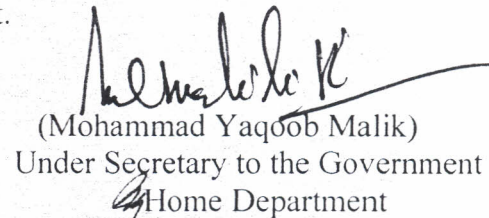 t.
(Mohammad Yaqoob Malik)
Under Secretary to the Government
Home Department